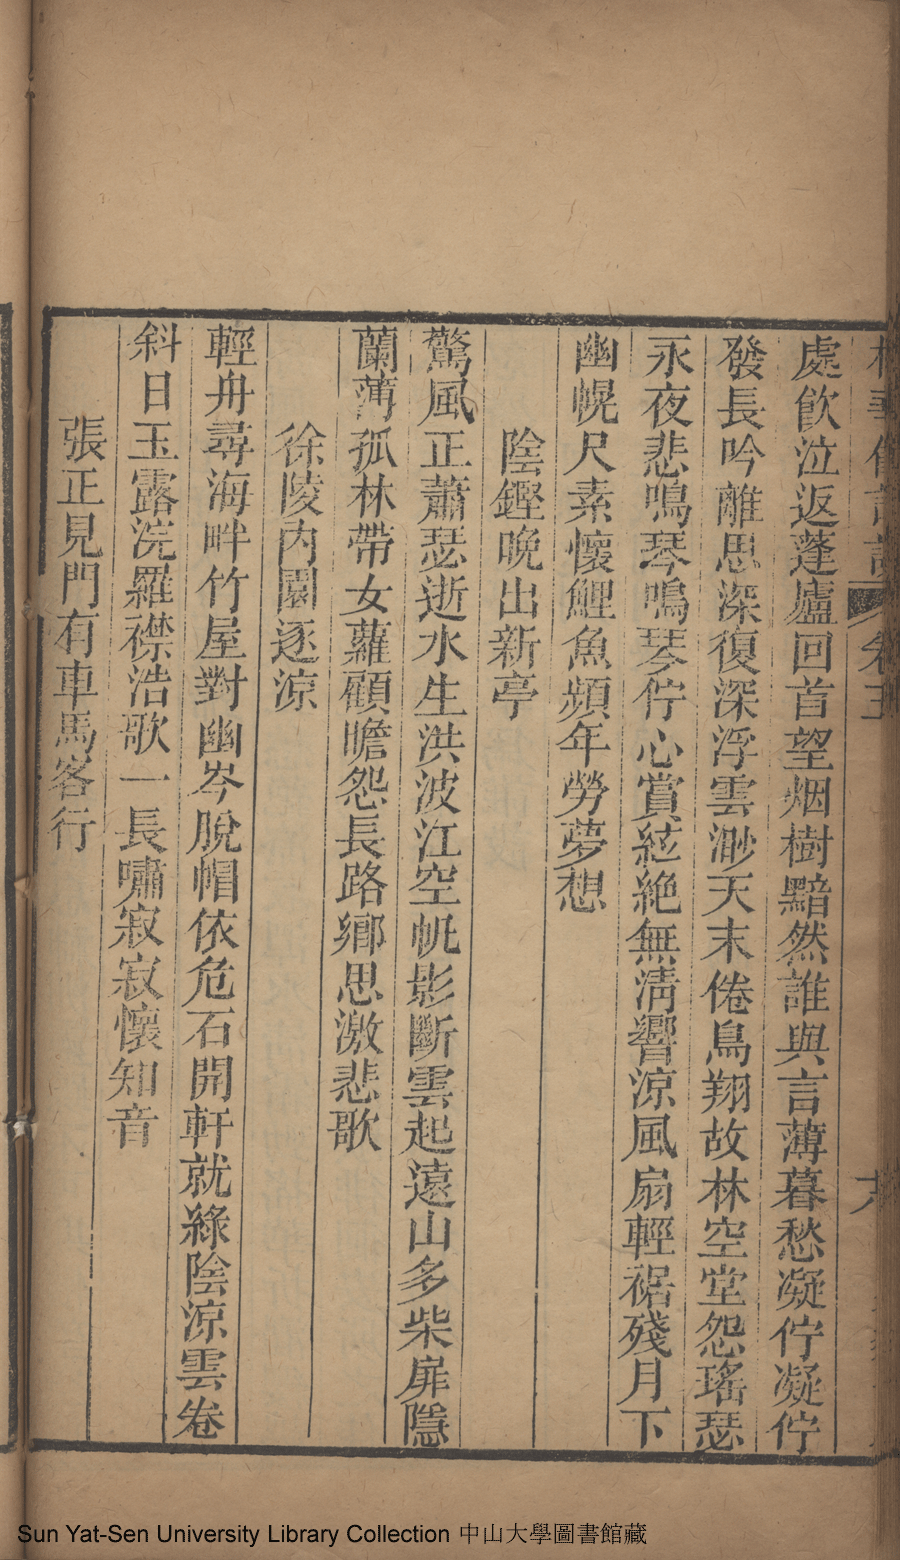 處飲泣返蓬廬回首望烟樹黯然誰與言薄暮愁凝佇凝佇
發長吟離思深復深浮雲渺天末倦鳥翔故林空堂怨瑤瑟
永夜悲鳴琴鳴琴佇心賞絃絶無清響涼風扇輕裾殘月下
幽幌尺素懷鯉魚頻年勞夢想
陰鏗晚出新亭
驚風正蕭瑟逝水生洪波江空帆影斷雲起遠山多柴扉隱
蘭薄孤林帶女蘿顧瞻怨長路鄉思激悲歌
徐陵內園逐涼
輕舟尋海畔竹屋對幽岑脫帽依危石開軒就綠陰涼雲卷
斜日玉露浣羅襟浩歌一長嘯寂寂懷知音
張正見門有車馬客行
Sun Yat-Sen University Library Collection 中山大學圖書館藏